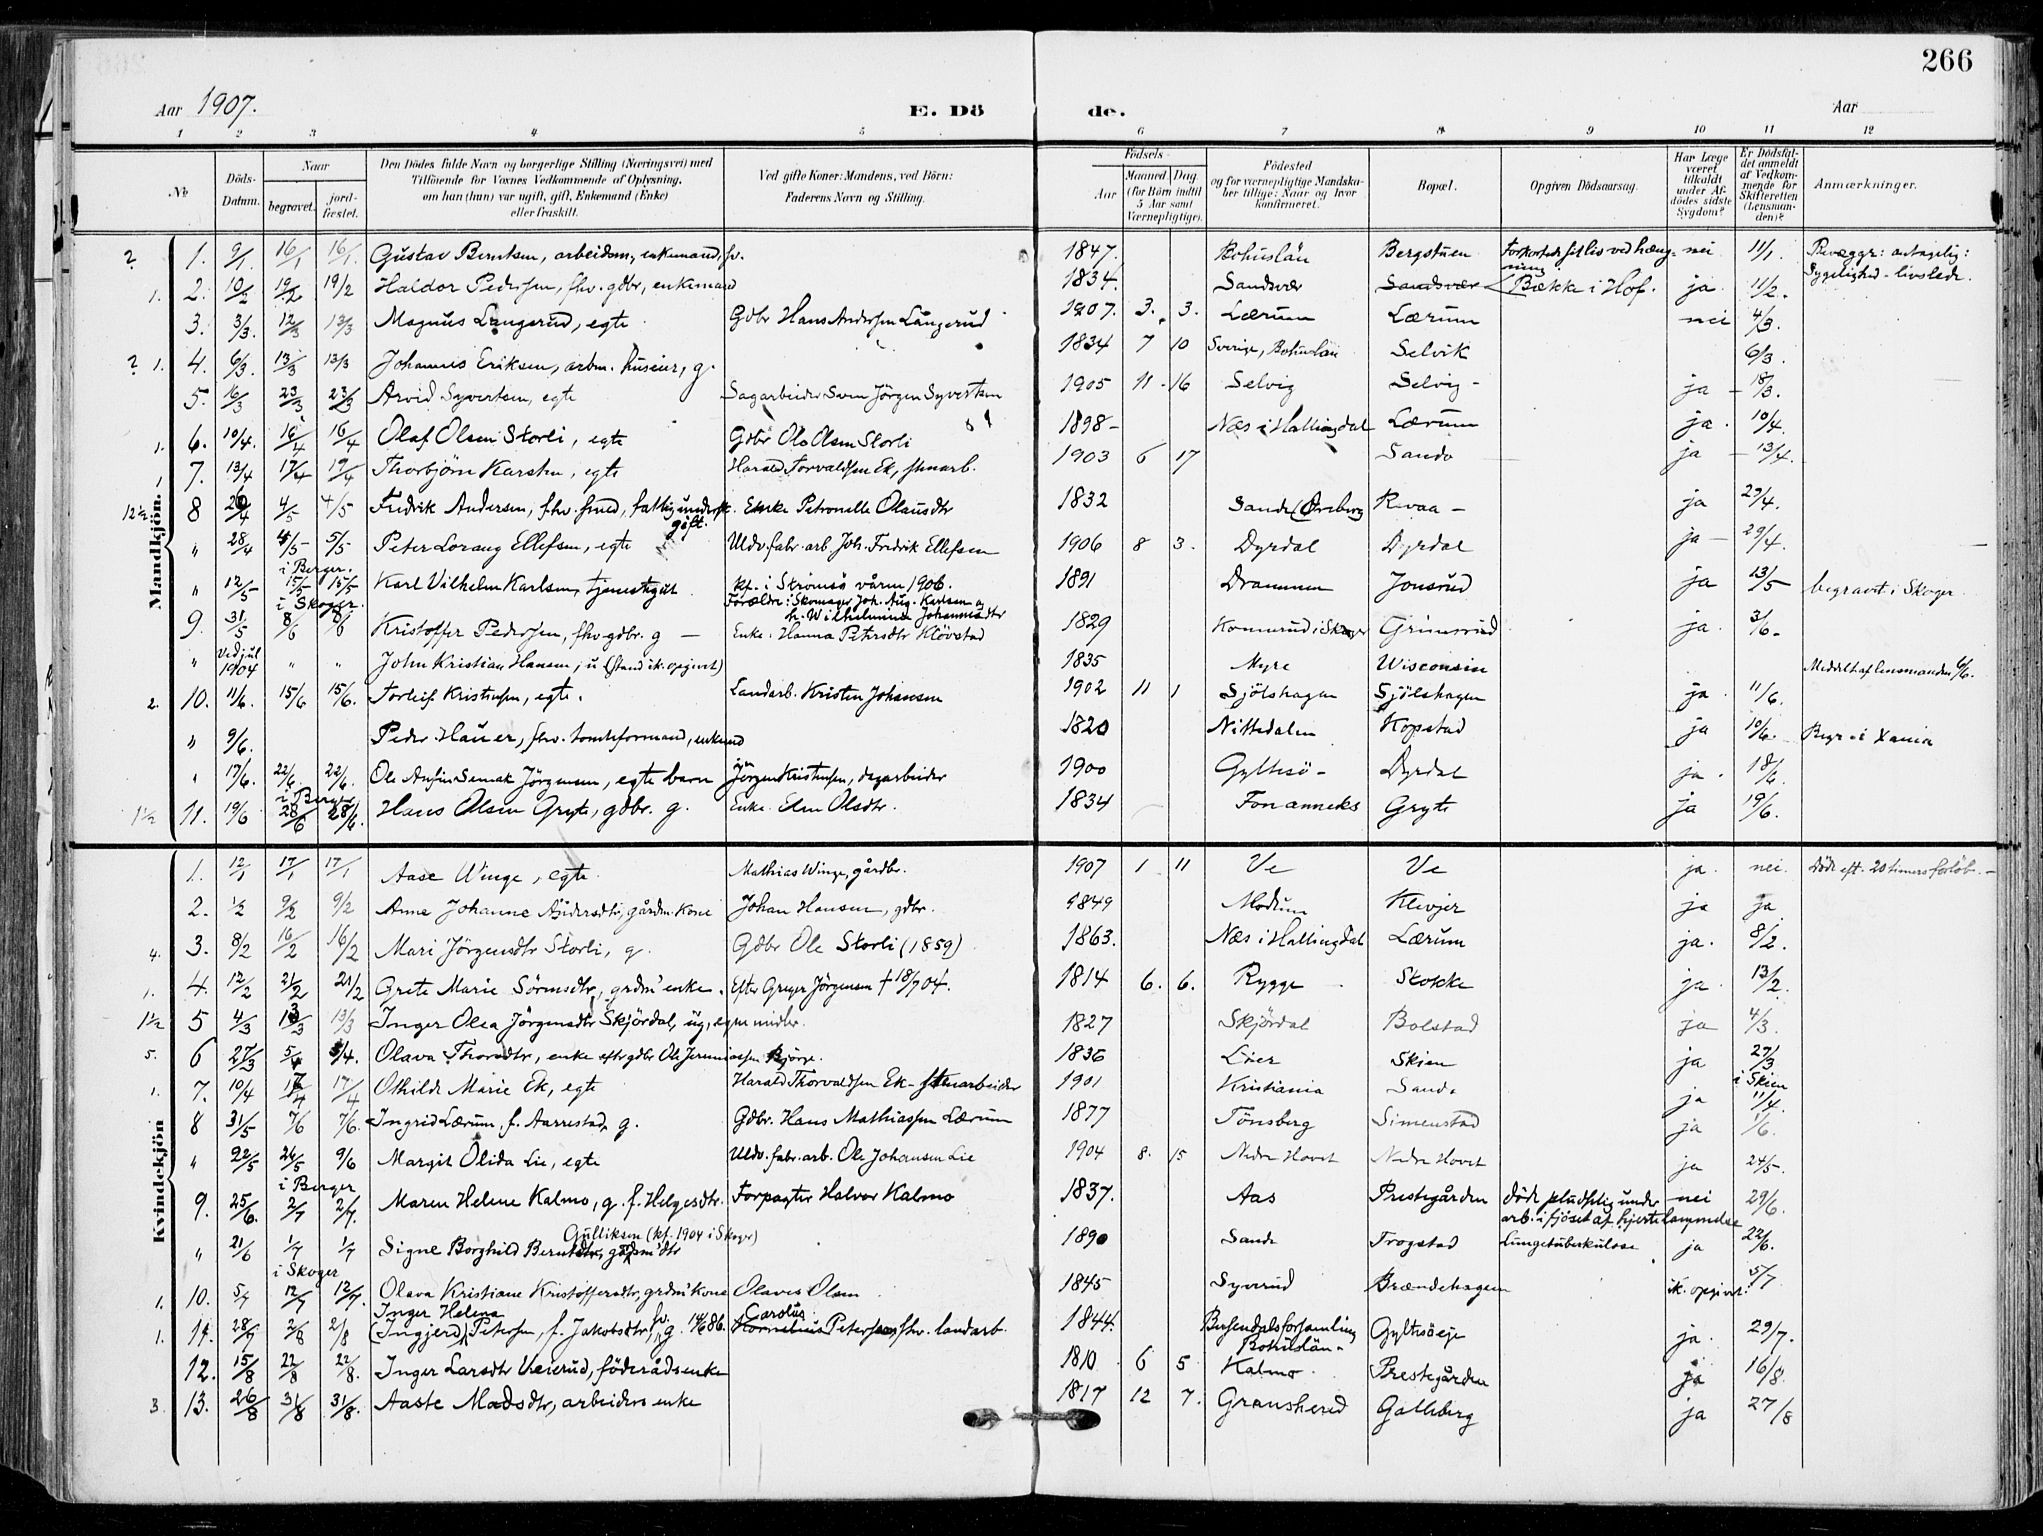 266
Aar 1907. E. Dö de. Aar
1 2 3 4 5 6 7 8 9 10 11 12
No
Döds-Datum.
Naar
begravet. jord-fæstet.
Den Dödes fulde Navn og borgerlige Stilling (Næringsvei) med
Tilföiende for Voxnes Vedkommende af Oplysning,
om han (hun) var ugift, gift, Enkemand (Enke)
eller fraskilt.
Ved gifte Koner: Mandens, ved Börn:
Faderens Navn og Stilling.
Födsels-
Aar Maaned Dag
(for Börn indtil
5 Aar samt
Værnepligtige).
Födested
og for værnepligtige Mandska-
ber tillige: Naar og hvor
konfirmeret.
Bopæl.
Opgiven Dödsaarsag.
Har Læge
været
tilkaldt
under Af-
dödes sidste
Sygdom?
Er Dödsfal-
det anmeldt
af Vedkom-
mende for
Skifteretten
(Lensman-
den)?
Anmærkninger.
Mandkjön.
2. 1. 9/1. 16/1 16/1. Gustav Berntsen, arbeidsm, enkemand, fv. 1847. Bohuslän Bergstuen Forkortede sit liv ved hæng-ning. nei 11/1. Bevæggr: antagelig: Sygelighed - livslede.
1. 2. 10/2 19/2 19/2 Haldor Pedersen, fhv. gdbr, enkemand 1834. Sandsvær Sandsvær Bække i Hof. ja 11/2.
3. 3/3. 12/3 13/3 Magnus Langerud, egte Gdbr Hans Andersen Langerud 1907. 3. 3. Lærum Lærum nei 4/3.
2 1. 4. 6/3. 13/3 13/3 Johannes Eriksen, arbm. huseier, g. 1834 7 10 Sverige, Bohuslän Selvik 6/3.
5. 16/3 23/3 23/3 Arvid Syvertsen, egte Sagarbeider Sven Jörgen Syvertsen 1905 11 - 16 Selvig Selvig - ja - 18/3.
1. 6. 10/4. 16/4 16/4 Olaf Olsen Storli, egte Gdbr Ole Olsen Storli 1898 - Næs i Hallingdal Lærum ja. 10/4.
1 7. 13/4 17/4 19/4 Thorbjörn Karsten, egte Harald Torvaldsen Ek, stenarb. 1903 6 17 Sande ja - 13/4.
12 1/2 8 4/5 4/5 Fredrik Andersen, fhv. smed, fattigunderst. gift. Enke Petronelle Olausdtr 1832 Sande Revaa - ja 29/4.
" 28/4 4/5 - 5/5 i Berger. Peter Lorang Ellefsen, egte Uldv. fabr. arb Joh. Fredrik Ellefsen 1906 8 3. Dyrdal Dyrdal ja - 29/4.
" 12/5 15/5 15/5 i Skoger. Karl Vilhelm Karlsen, tjenestegut kf. i Strömsö våren 1906. Forældre: Skomager Joh. Aug. Karlsen og h. Wilhelmine Johannesdtr 1891 Drammen Jonsrud ja 13/5 begravet i Skoger
9. 31/5 8/6 8/6 Kristoffer Pedersen, fhv gdbr. g - Enke. Hanna Petersdtr Klövstad 1829 Konnerud i Skoger Grimsrud ja. 3/6 -
" Ved jul 1904 " " John Kristian Hansen, u (stand ik. opgivet) 1835 Myre Wisconsin Meddelt af lensmanden 6/6.
2. 10. 11/6. 15/6 15/6. Torleif Kristensen, egte. Landarb. Kristen Johansen 1902 11 1 Sjölshagen Sjölshagen ja 11/6.
" 9/6. Peder Hauer, fhv. tomteformand, enkemd 1820 Nittedalen Kopstad ja 10/6. Begr. i Xania
" 17/6. 22/6. 22/6. i Berger Ole Anfin Semak Jörgensen, egte barn Jörgen Kristensen, dagarbeider 1900 Gyltesö - Dyrdal ja. 18/6
1 1/2 11. 19/6 28/6 28/6. Hans Olsen Gryte, gdbr. g. Enke. Elen Olsdtr. 1834 Fon anneks Gryte ja 19/6.
Kvindekjön
1. 12/1 17/1 17/1 Aase Winge, egte. Mathias Winge, gårdbr. 1907 1 11 Ve Ve ja. nei. Döde eft. 20 timers forlöb. -
2. 1/2 9/2 9/2 Anne Johanne Andersdtr, gårdm. kone Johan Hansen, gdbr. 1849 Modum Klevjer ja ja
4. 3. 8/2 16/2 16/2 Mari Jörgensdtr Storli, g. Gdbr Ole Storli (1859) 1863. Næs i Hallingdal Lærum ja. 8/2.
1. 4. 12/2 21/2 21/2 Grete Marie Sörensdtr, grdm' enke. Efter Greger Jörgensen † 18/7 04. 1814 6. 6. Rygge Stokke ja 13/2.
1 1/2 5 4/3 13/3 13/3 Inger Olea Jörgensdtr Skjördal, ug, egne midler. 1827 Skjördal Bolstad ja 4/3.
5. 6 27/3 5/4 5/4. Olava Thorsdtr, enke efter gdbr Ole Jeremiassen Björge. 1836 Lier Skien ja 27/3 i Skien
1. 7. 10/4 17/4 17/4 Othilde Marie Ek, egte Harald Thorvaldsen Ek - stenarbeider 1901 Kristiania Sande ja 11/4.
8 31/5 7/6 7/6. Ingrid Lærum, f. Aarrestad, g. Gdbr. Hans Mathiassen Lærum 1877 Tönsberg Simenstad ja 1/6.
" 22/5 26/5 9/6 i Berger Margit Olida Lie, egte Uldv. fabr. arb. Ole Johansen Lie 1904 8. 15 Nedre Hovet Nedre Hovet ja 24/5.
9. 25/6. 2/7 2/7. Maren Helene Kalmo, g. f. Helgesdtr. Forpagter Halvor Kalmo 1837. Aas Prestegården döde pludselig under arb. i fjöset af hjertelammelse nei 29/6.
" 21/6 1/7 1/7 i Skoger Signe Borghild Berntsdtr, gårdm'dtr Gulliksen (kf. 1904 i Skoger) 1890 Sande Trogstad Lungetuberkulose ja 22/6.
1. 10. 5/7 12/7 12/7. Olava Kristiane Kristoffersdtr, grdm' kone Olaves Olsen 1845 Syverud Brændehagen ik. opgivet. 5/7
1. 11. 28/7 2/8 2/8 Inger Helena (Ingjerd) Petersen, f. Jakobsdtr, fv. g. 14/6 86. Carolus Kornelius Petersen, fhv. landarb. 1844. Bohuslän - Gyltesöeje ja. 29/7.
12. 15/8 22/8 22/8. Inger Larsdtr Veierud, föderådsenke 1810 6 5 Kalmo Prestegården ja 16/8
3. 13. 26/8 31/8 31/8. Aaste Madsdtr, arbeiders enke 1817 12 7. Gransherred Galleberg ja 27/8